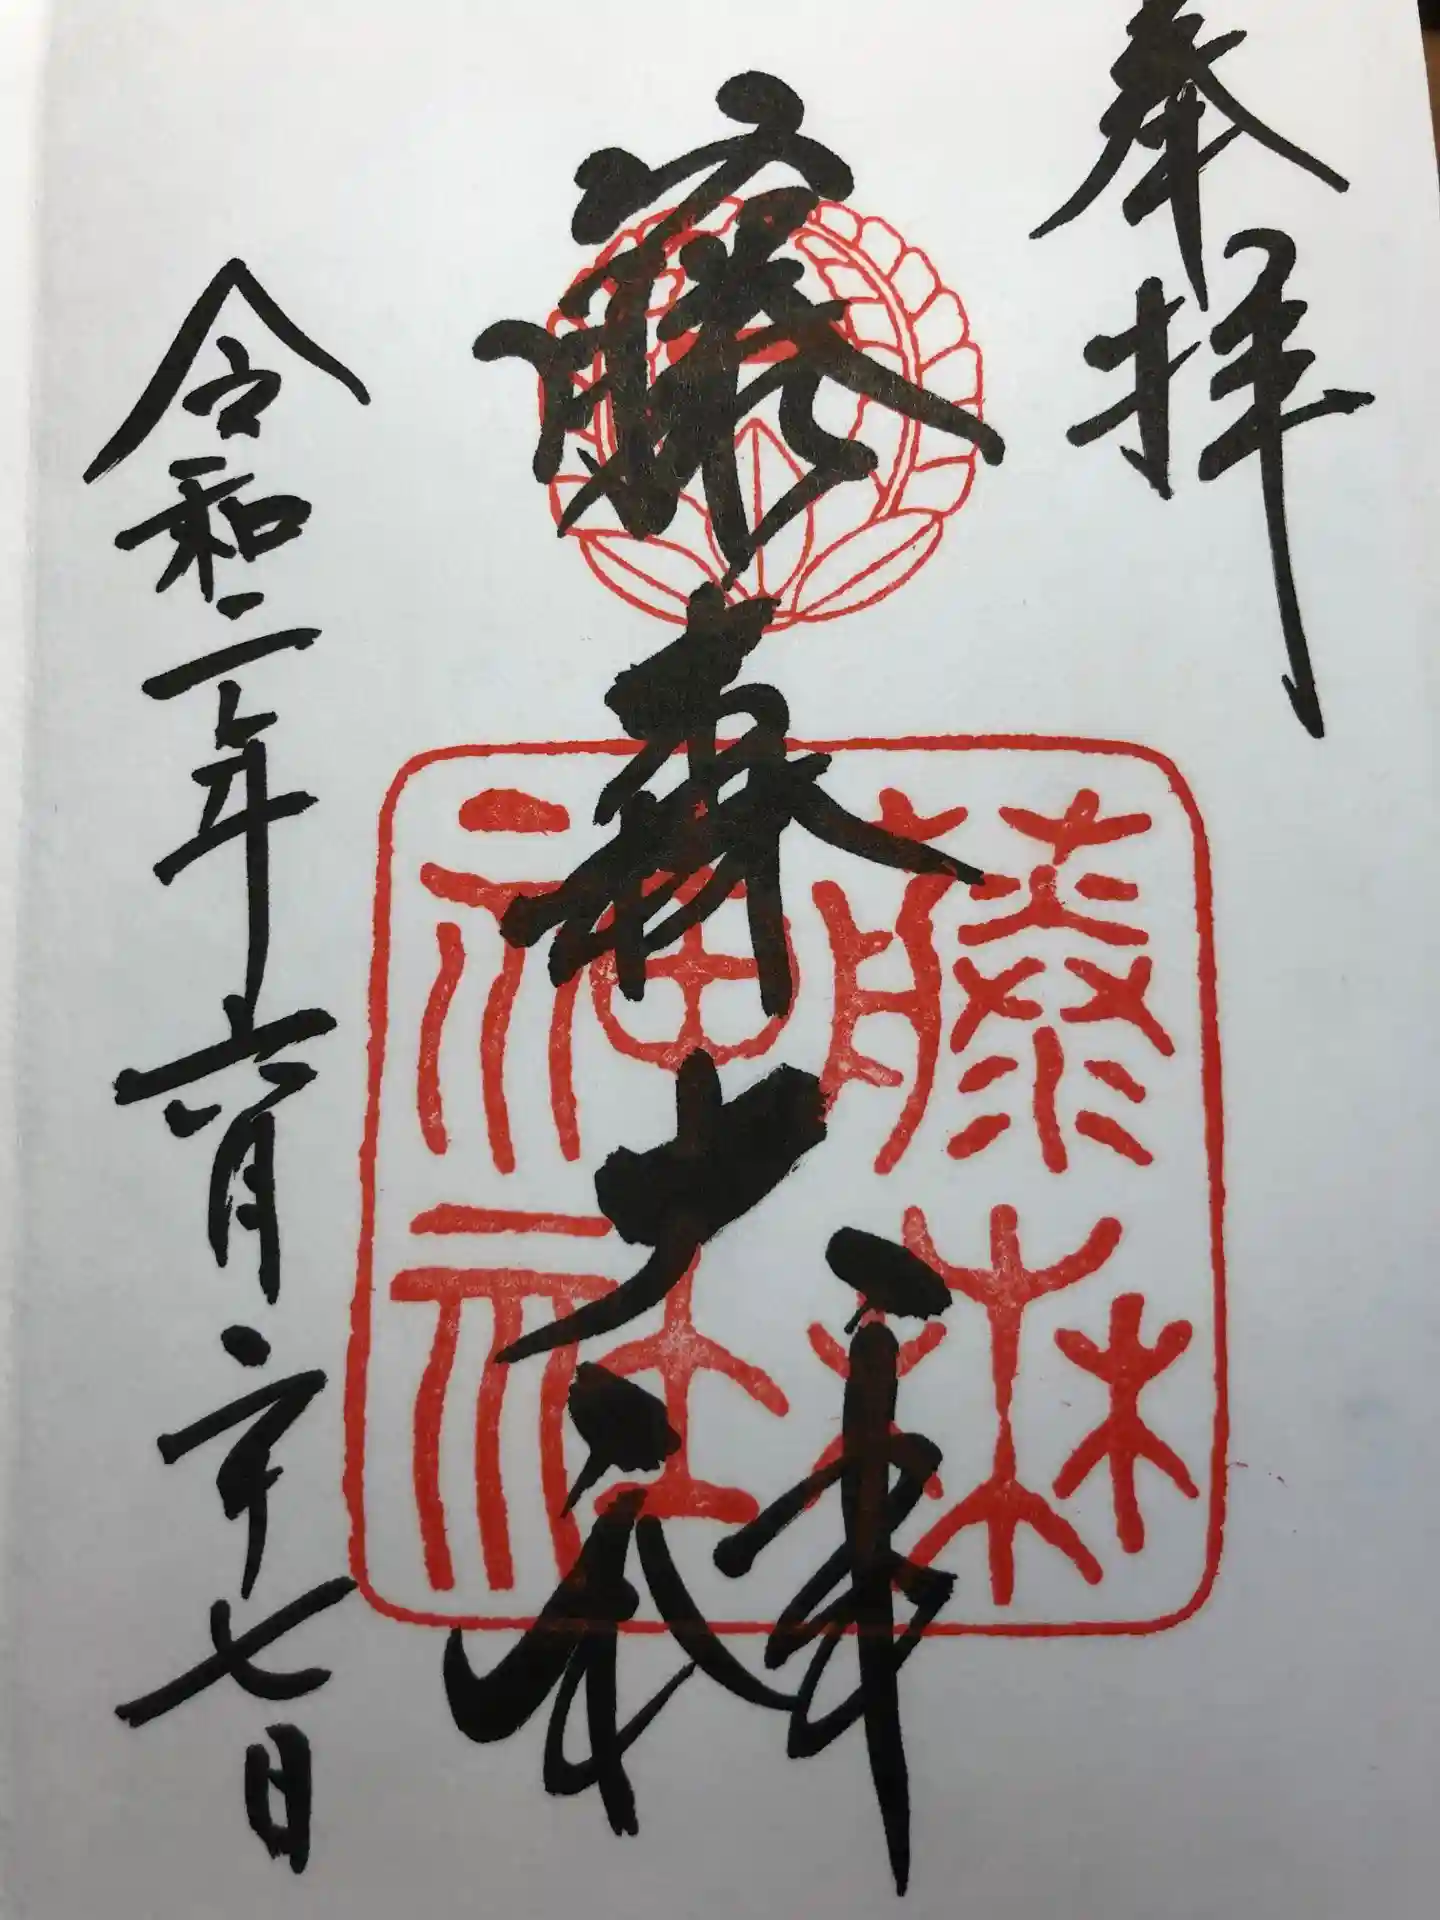 奉拝
藤森大神
藤森
神社
令和二年六月二十七日